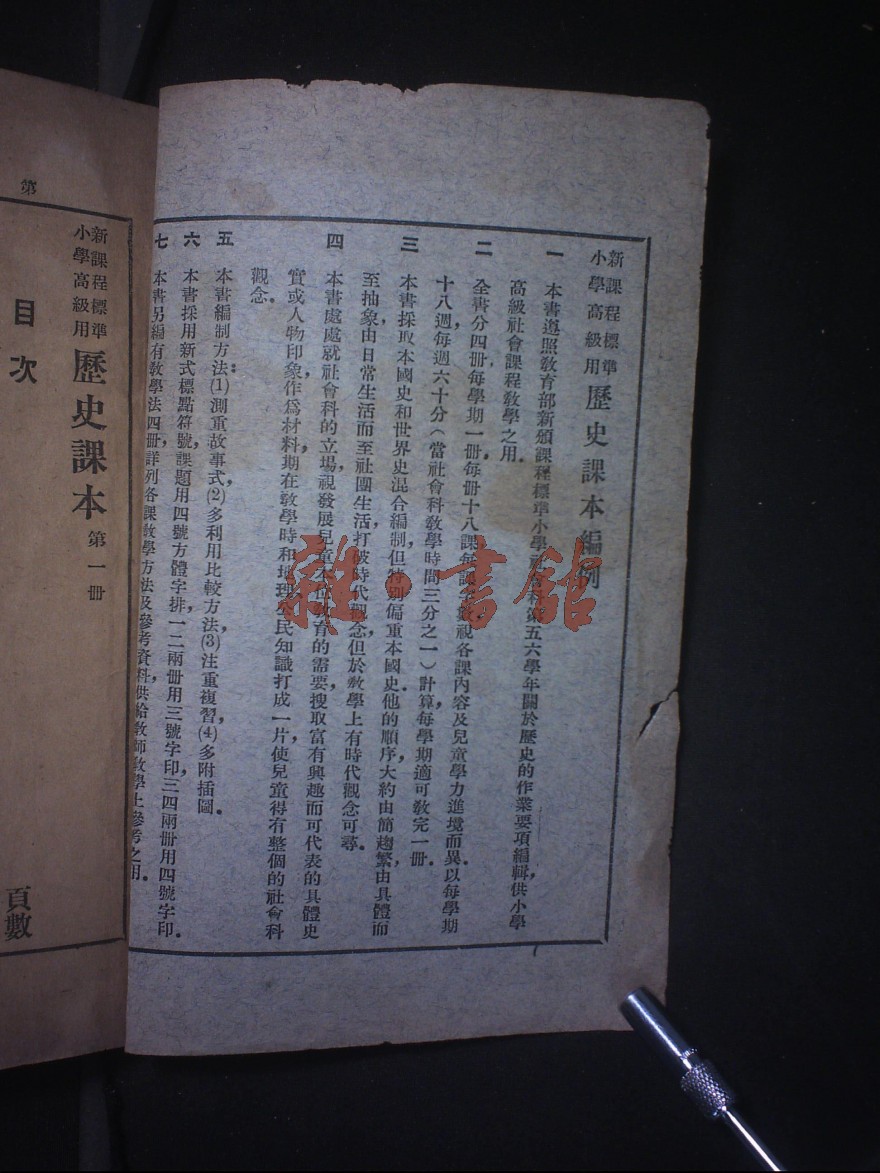 新課程標準
小學高級用
歷史課本編例
一 本書遵照教育部新頒課程標準小學社會科第五六學年關於歷史的作業要項編輯，供小學
高級社會課程教學之用。
二 全書分四冊每學期一冊每冊十八課每課視各課內容及兒童學力進境而異。以每學期
十八週，每週六十分（當社會科教學時間三分之一）計算，每學期適可教完一冊。
三 本書採取本國史和世界史混合編制，但特別偏重本國史。他的順序，大約由簡趨繁，由具體而
至抽象，由日常生活而至社團生活，打破時代觀念，但於教學上有時代觀念可尋。
四 本書處處就社會科的立場，視發展兒童本位教育的需要，搜取富有興趣而可代表的具體史
實或人物印象，作爲材料，期在教學時和地理公民知識打成一片，使兒童得有整個的社會科
觀念。
五 本書編制方法：(1)測重故事式，(2)多利用比較方法，(3)注重複習，(4)多附插圖。
六 本書採用新式標點符號，課題用四號方體字排，一二兩冊用三號字印，三四兩冊用四號字印。
七 本書另編有教學法四冊，詳列各課教學方法及參考資料，供給教師教學上參考之用。
新課程標準
小學高級用
歷史課本 第一冊
目次
頁數
第
雜·書館